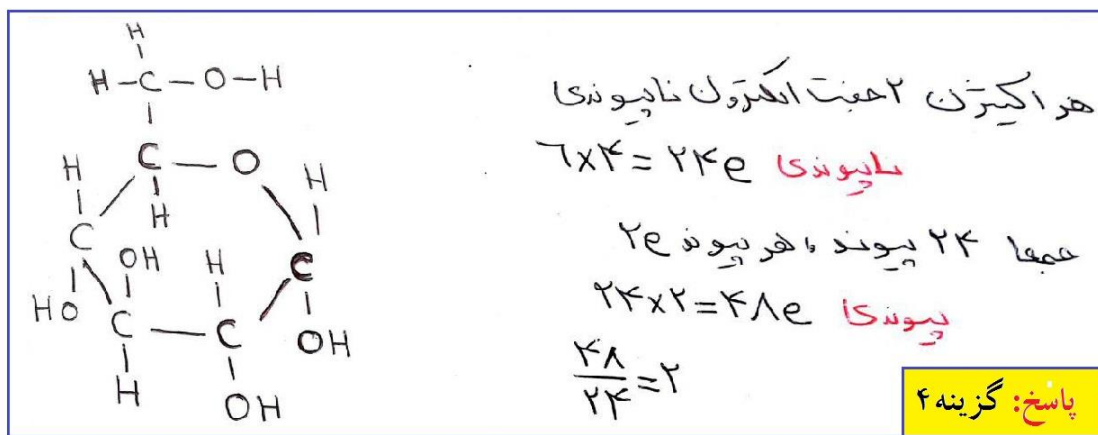 H
H-C-O-H
C-O
H
H
H
C
OH
H
C
HO
C-C
OH
H
OH
هر اکیژن ۲ جفت الکترون ناپیوندی
۶×۴=۲۴e ناپیوندی
جمعا ۲۴ پیوند، هر پیوند ۲e
۲۴×۲=۴۸e پیوندی
۴۸/۲۴=۲
پاسخ: گزینه ۴